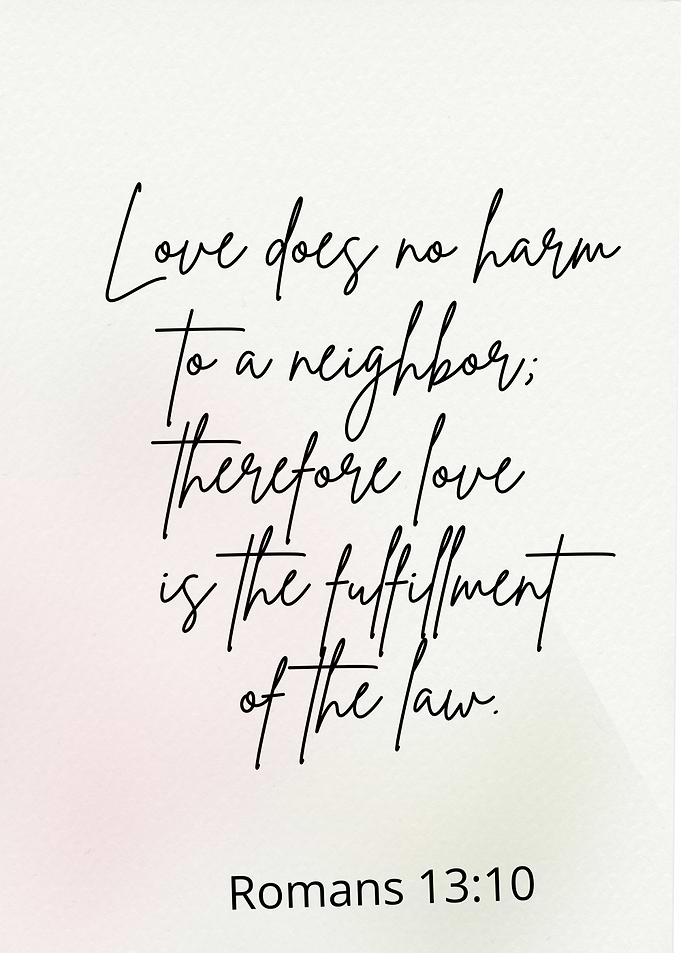 Love does no harm
to a neighbor;
therefore love
is the fulfillment
of the law.
Romans 13:10